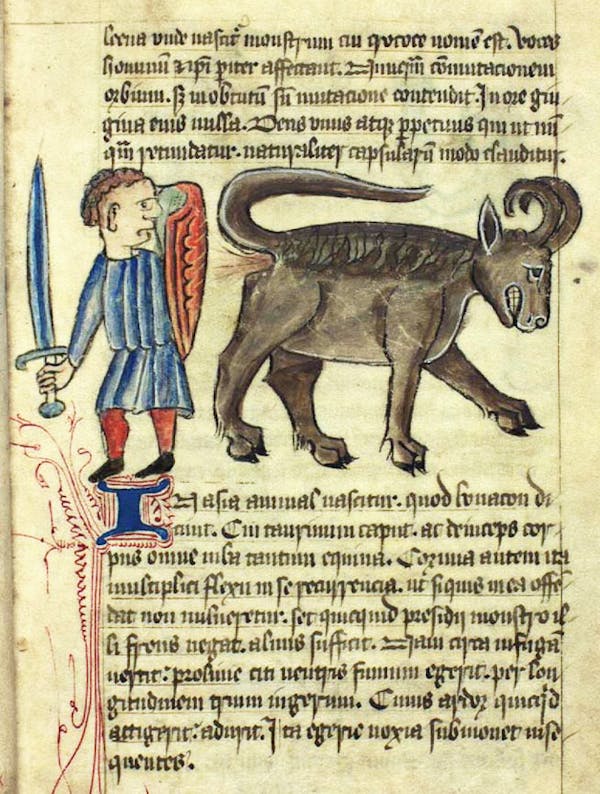 leena unde nascit᷑ monstrum cui crocote nomen est. Voces
hominum ⁊ ip̄i ꝑiter affectant. Nunqm̄ cōmutacionem
orbium. sꝫ in obtutum sn̄ mutacione contendit. In ore gin
giua eius nulla. Dens vnus atqꝫ ꝑpetuus qui ut nū
qm̄ retundatur. naturaliter capsularū modo clauditur.
In asia animal nascitur. quod bonacon di
cunt. Cui taurinum caput. ac deinceps cor
pus omne iuba tantum equina. Cornua autem ita
multiplici flexu in se recurrencia. ut siquis in ea offē
dat non uulneretur. set quicquid presidii monstro il
li frons negat. aluus sufficit. Nam in fugam
uertit. proluuie citi uentris fimum egerit. per lon
gitudinem trium iugerum. Cuius ardor quicqͥd
attigerit. adurit. Ita egerie noxia submouet inse
quentes.